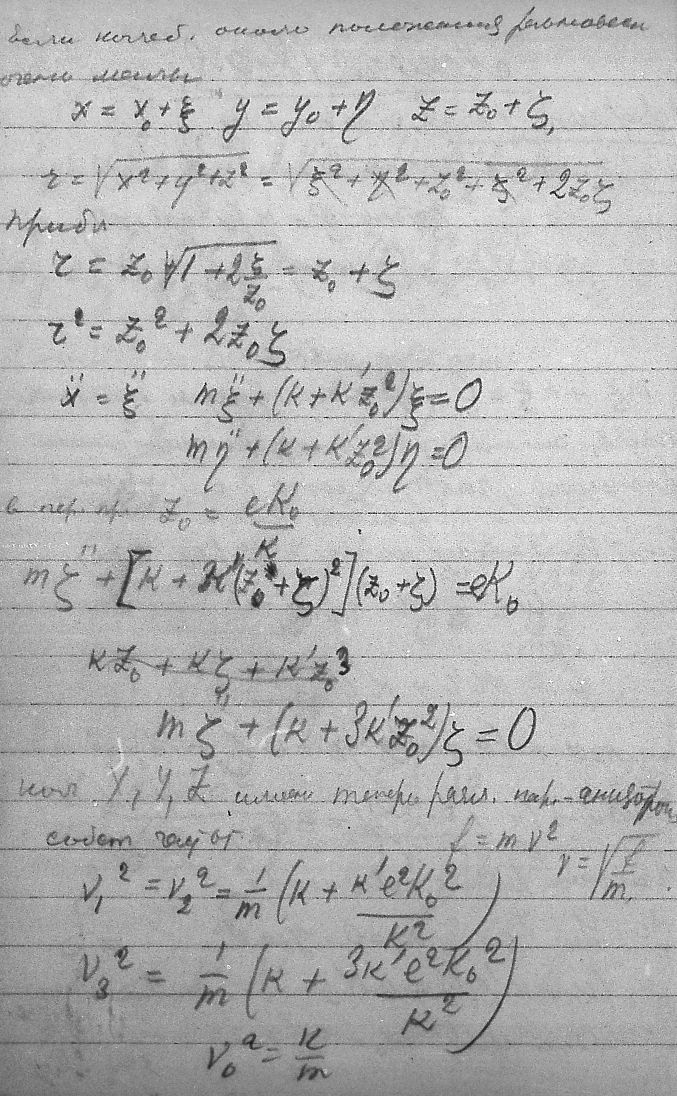 если колеб. около положения равновесия
очень малы
x = x₀ + ξ y = y₀ + η z = z₀ + ζ,
r = √(x² + y² + z²) = √(ξ² + η² + z₀² + ζ² + 2z₀ζ)
прибл
r = z₀ √(1 + 2ζ/z₀) = z₀ + ζ
r² = z₀² + 2z₀ζ
ẍ = ξ̈ mξ̈ + (k + k'z₀²)ξ = 0
mη̈ + (k + k'z₀²)η = 0
в пер. пр. z₀ = eK₀/k
mζ̈ + [k + k'(z₀ + ζ)²](z₀ + ζ) = eK₀
kz₀ + kζ + k'z₀³
mζ̈ + (k + 3k'z₀²)ζ = 0
кол X, Y, Z имеют теперь разл. пар. - анизотроп
собст частот f = mν² ν = √(f/m)
ν₁² = ν₂² = 1/m (k + k'e²K₀²/k²)
ν₃² = 1/m (k + 3k'e²K₀²/k²)
ν₀² = k/m